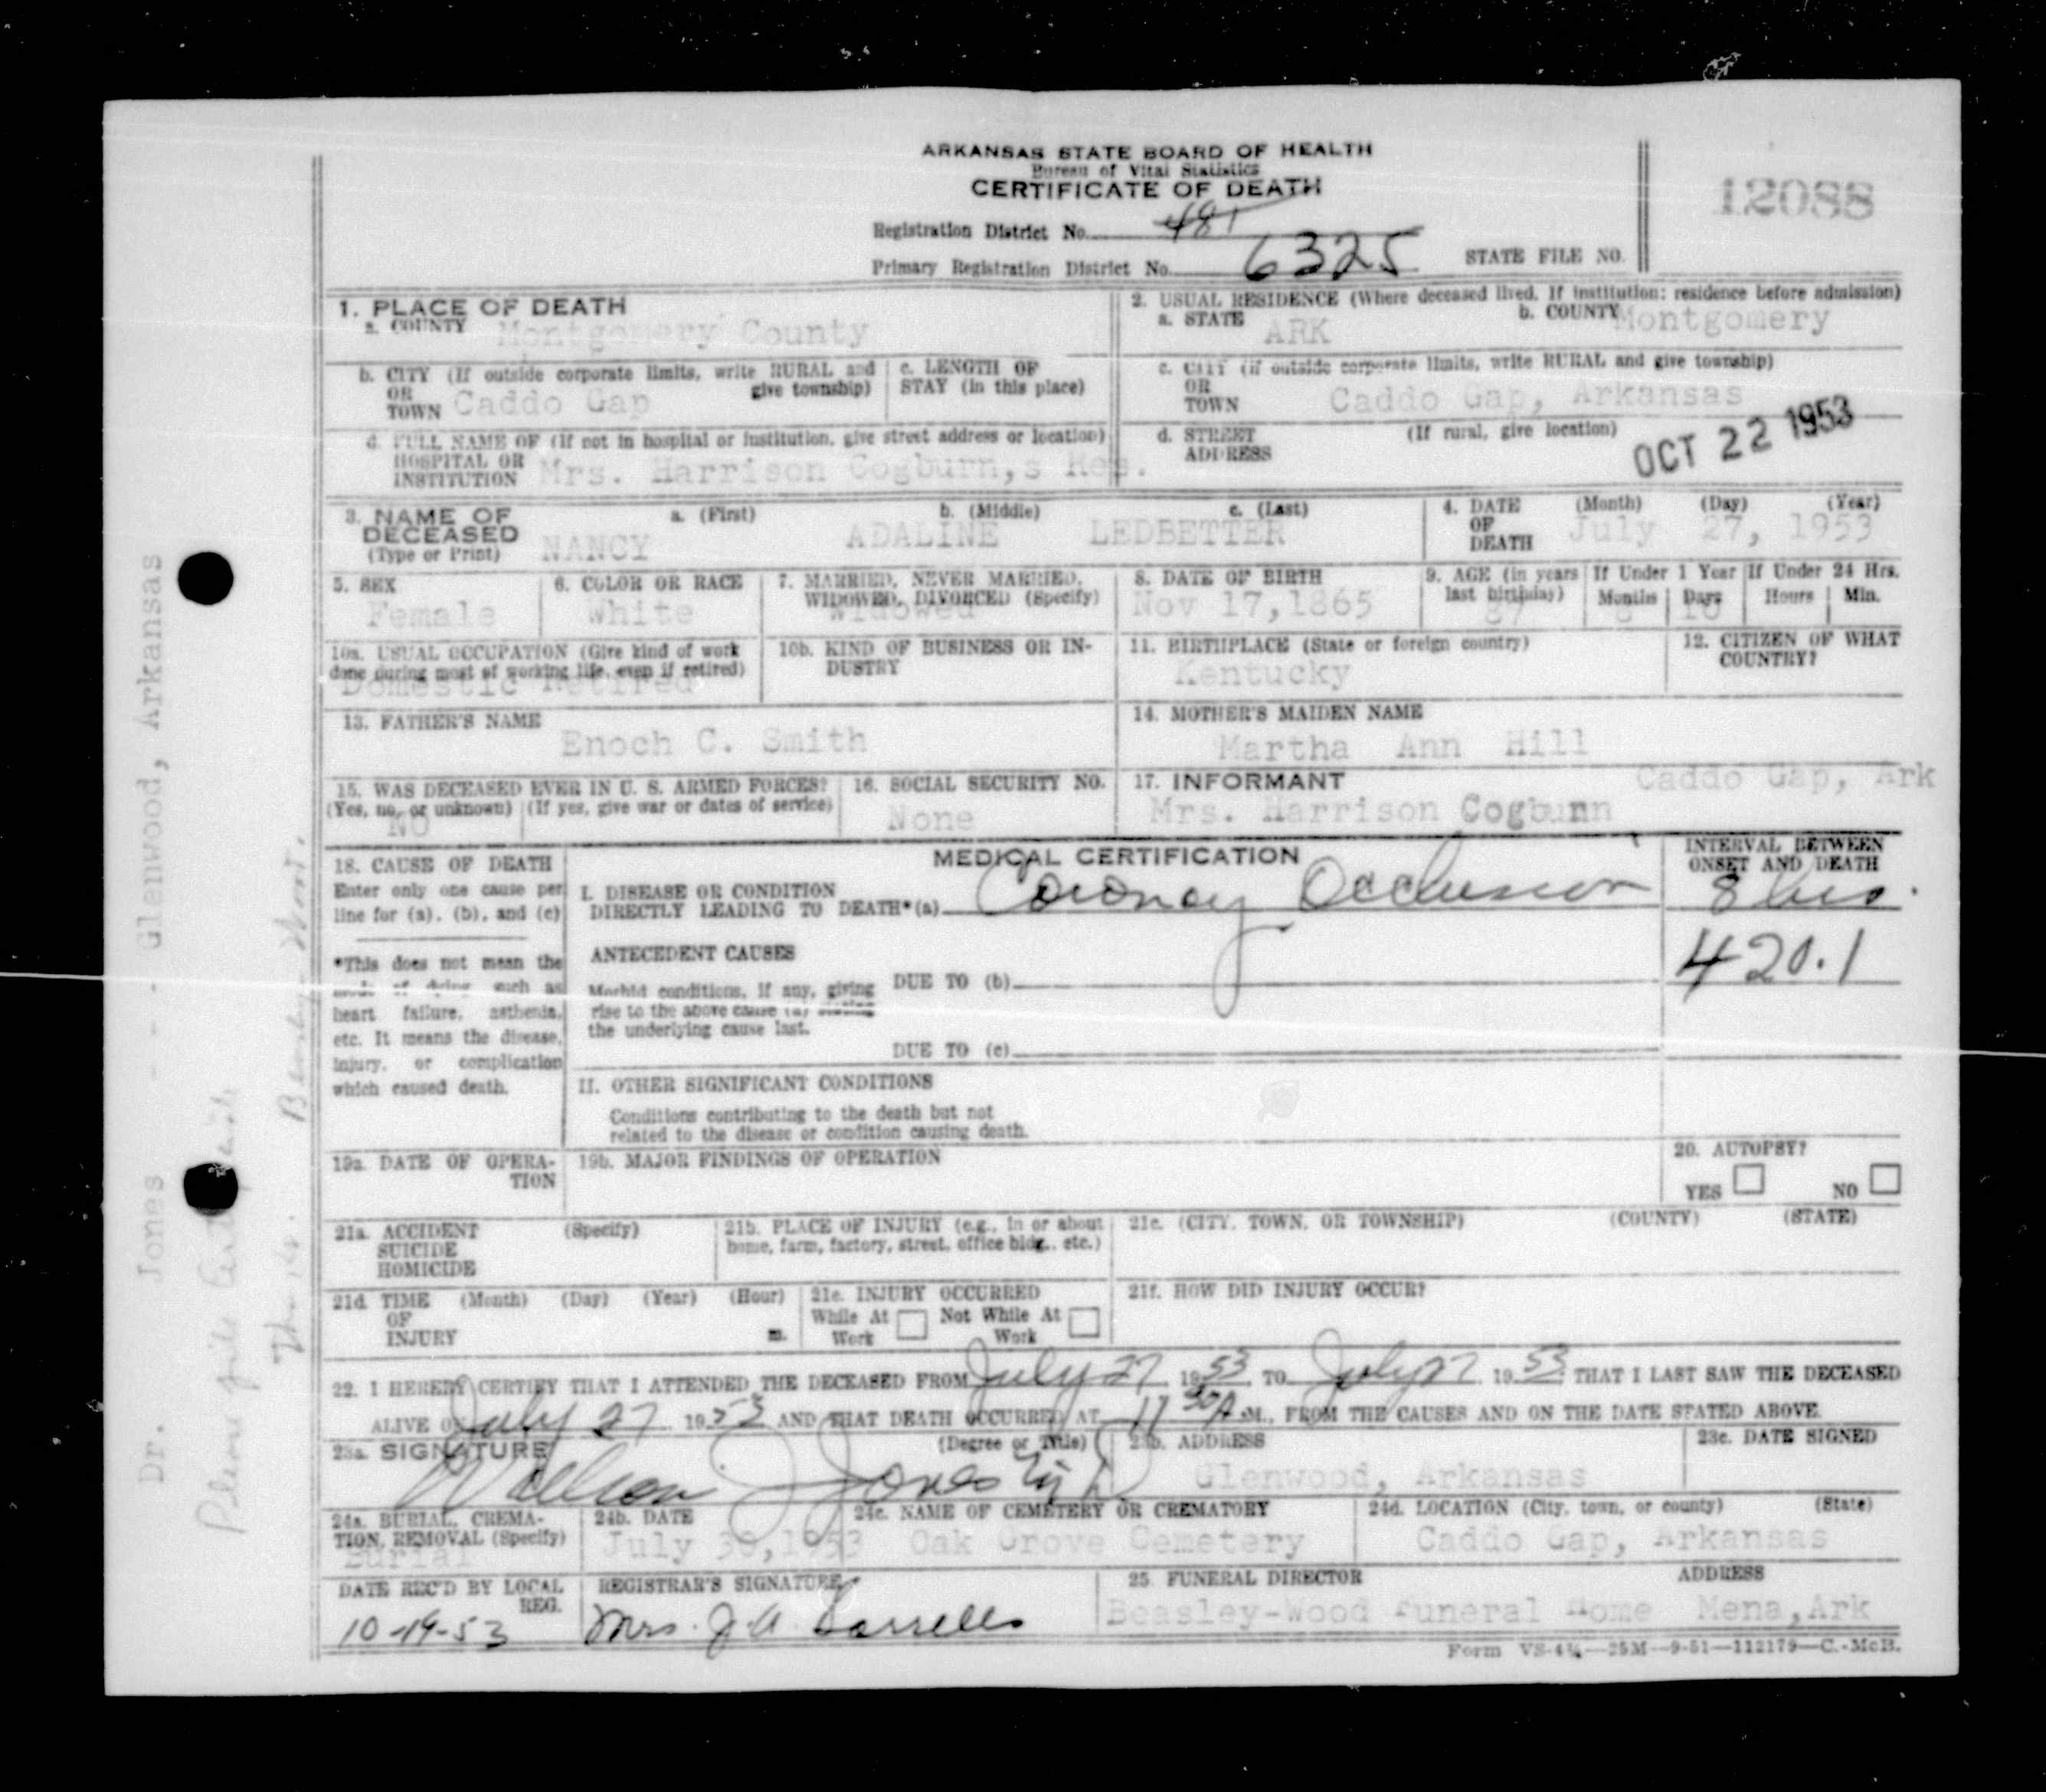 ARKANSAS STATE BOARD OF HEALTH
Bureau of Vital Statistics
CERTIFICATE OF DEATH
12088
Registration District No. 481
Primary Registration District No. 6325 STATE FILE NO.
1. PLACE OF DEATH
a. COUNTY Montgomery County
2. USUAL RESIDENCE (Where deceased lived. If institution: residence before admission)
a. STATE ARK b. COUNTY Montgomery
b. CITY (If outside corporate limits, write RURAL and give township)
OR TOWN Caddo Gap
c. LENGTH OF STAY (in this place)
c. CITY (if outside corporate limits, write RURAL and give township)
OR TOWN Caddo Gap, Arkansas
d. FULL NAME OF (If not in hospital or institution, give street address or location)
HOSPITAL OR INSTITUTION Mrs. Harrison Cogburn,s Res.
d. STREET ADDRESS (If rural, give location)
OCT 22 1953
3. NAME OF DECEASED (Type or Print)
a. (First) NANCY b. (Middle) ADALINE c. (Last) LEDBETTER
4. DATE OF DEATH (Month) (Day) (Year) July 27, 1953
5. SEX Female
6. COLOR OR RACE White
7. MARRIED, NEVER MARRIED, WIDOWED, DIVORCED (Specify) Widowed
8. DATE OF BIRTH Nov 17,1865
9. AGE (in years last birthday) 87 If Under 1 Year Months 8 Days 10 If Under 24 Hrs. Hours Min.
10a. USUAL OCCUPATION (Give kind of work done during most of working life, even if retired) Domestic Retired
10b. KIND OF BUSINESS OR INDUSTRY
11. BIRTHPLACE (State or foreign country) Kentucky
12. CITIZEN OF WHAT COUNTRY?
13. FATHER'S NAME Enoch C. Smith
14. MOTHER'S MAIDEN NAME Martha Ann Hill
15. WAS DECEASED EVER IN U. S. ARMED FORCES?
(Yes, no, or unknown) (If yes, give war or dates of service) NO
16. SOCIAL SECURITY NO. None
17. INFORMANT Caddo Gap, Ark
Mrs. Harrison Cogbunn
18. CAUSE OF DEATH
Enter only one cause per line for (a), (b), and (c)
*This does not mean the mode of dying such as heart failure, asthenia, etc. It means the disease, injury, or complication which caused death.
MEDICAL CERTIFICATION
I. DISEASE OR CONDITION
DIRECTLY LEADING TO DEATH*(a) Coronay Occlusion
INTERVAL BETWEEN ONSET AND DEATH
8 hrs.
420.1
ANTECEDENT CAUSES
Morbid conditions, if any, giving rise to the above cause (a) stating the underlying cause last.
DUE TO (b)
DUE TO (c)
II. OTHER SIGNIFICANT CONDITIONS
Conditions contributing to the death but not related to the disease or condition causing death.
19a. DATE OF OPERATION
19b. MAJOR FINDINGS OF OPERATION
20. AUTOPSY?
YES NO
21a. ACCIDENT SUICIDE HOMICIDE (Specify)
21b. PLACE OF INJURY (e.g., in or about home, farm, factory, street, office bldg., etc.)
21c. (CITY, TOWN, OR TOWNSHIP) (COUNTY) (STATE)
21d. TIME OF INJURY (Month) (Day) (Year) (Hour) m.
21e. INJURY OCCURRED
While At Work Not While At Work
21f. HOW DID INJURY OCCUR?
22. I HEREBY CERTIFY THAT I ATTENDED THE DECEASED FROM July 27 1953 TO July 27 1953 THAT I LAST SAW THE DECEASED
ALIVE ON July 27 1953 AND THAT DEATH OCCURRED AT 11 30 A M., FROM THE CAUSES AND ON THE DATE STATED ABOVE.
23a. SIGNATURE (Degree or Title) Jones
23b. ADDRESS Glenwood, Arkansas
23c. DATE SIGNED
24a. BURIAL, CREMATION, REMOVAL (Specify) Burial
24b. DATE July 30,1953
24c. NAME OF CEMETERY OR CREMATORY Oak Grove Cemetery
24d. LOCATION (City, town, or county) (State) Caddo Gap, Arkansas
DATE REC'D BY LOCAL REG. 10-19-53
REGISTRAR'S SIGNATURE Mrs. J. A.
25. FUNERAL DIRECTOR ADDRESS
Beasley-Wood Funeral Home Mena,Ark
Form VS-4¼—25M—9-51—112179—C.-McB.
Dr. Jones - - Glenwood, Arkansas
Please file
Thanks. Beasley-Wood.